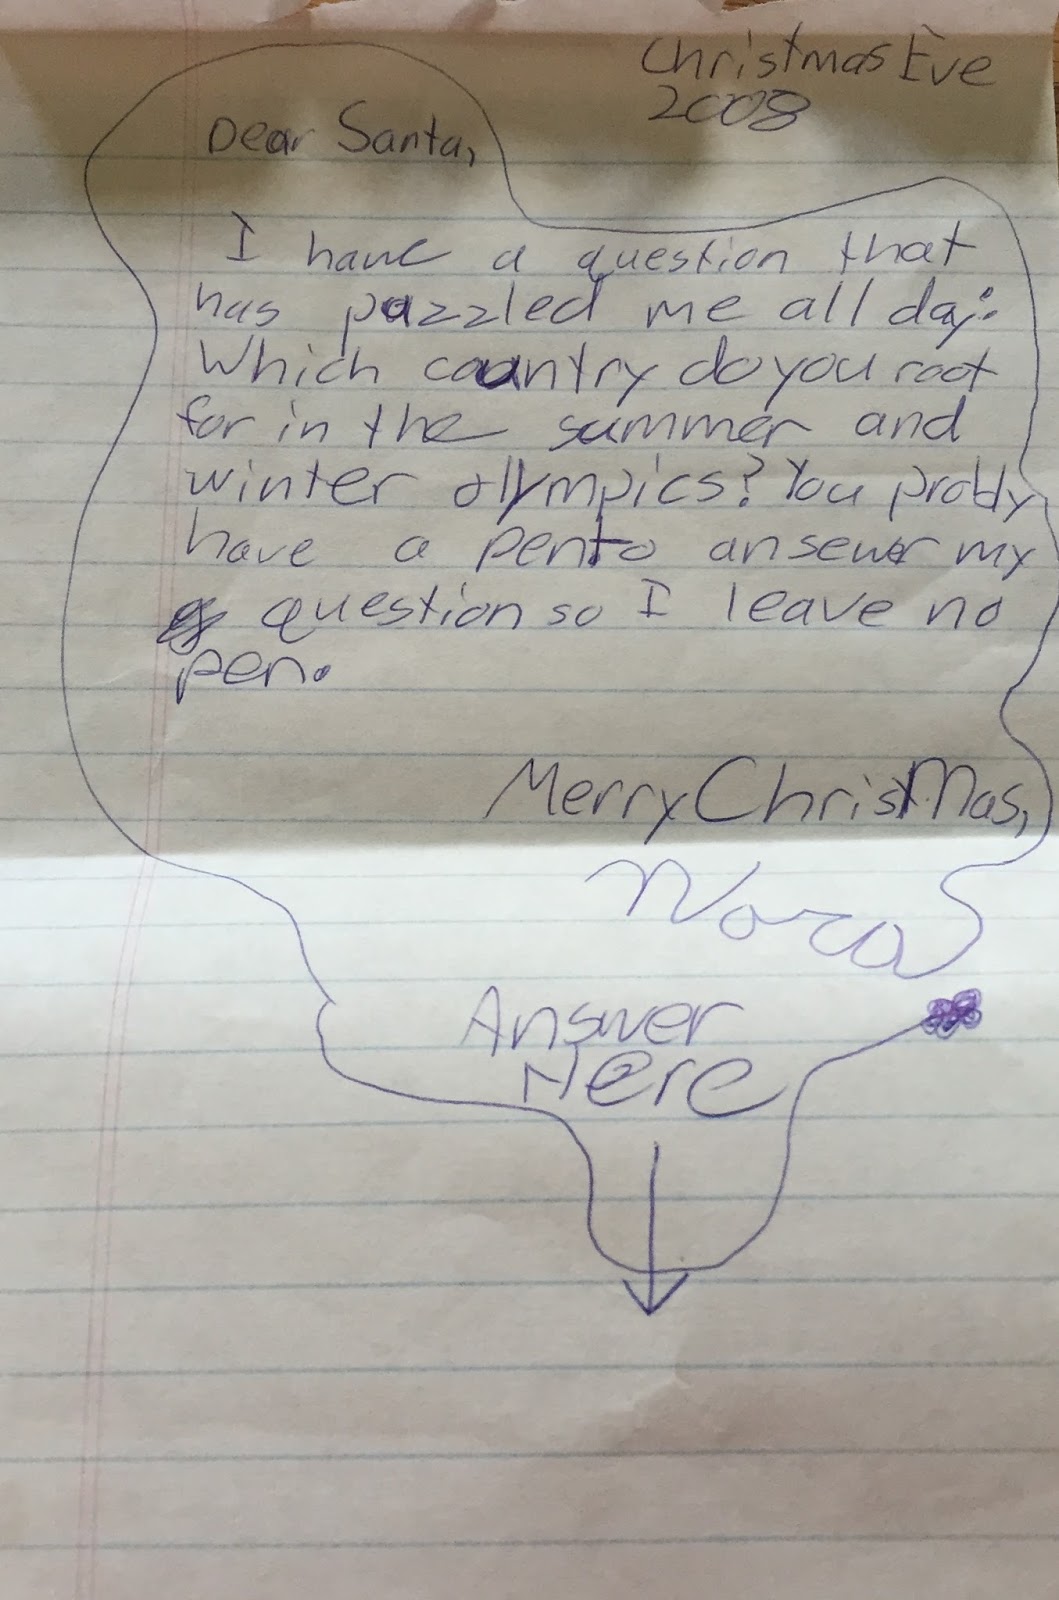 Christmas Eve
2008
Dear Santa,
I have a question that
has puzzled me all day:
Which country do you root
for in the summer and
winter ollympics? You probly
have a pen to ansewer my
question so I leave no
pen.
Merry ChristMas,
Nora
Answer
Here